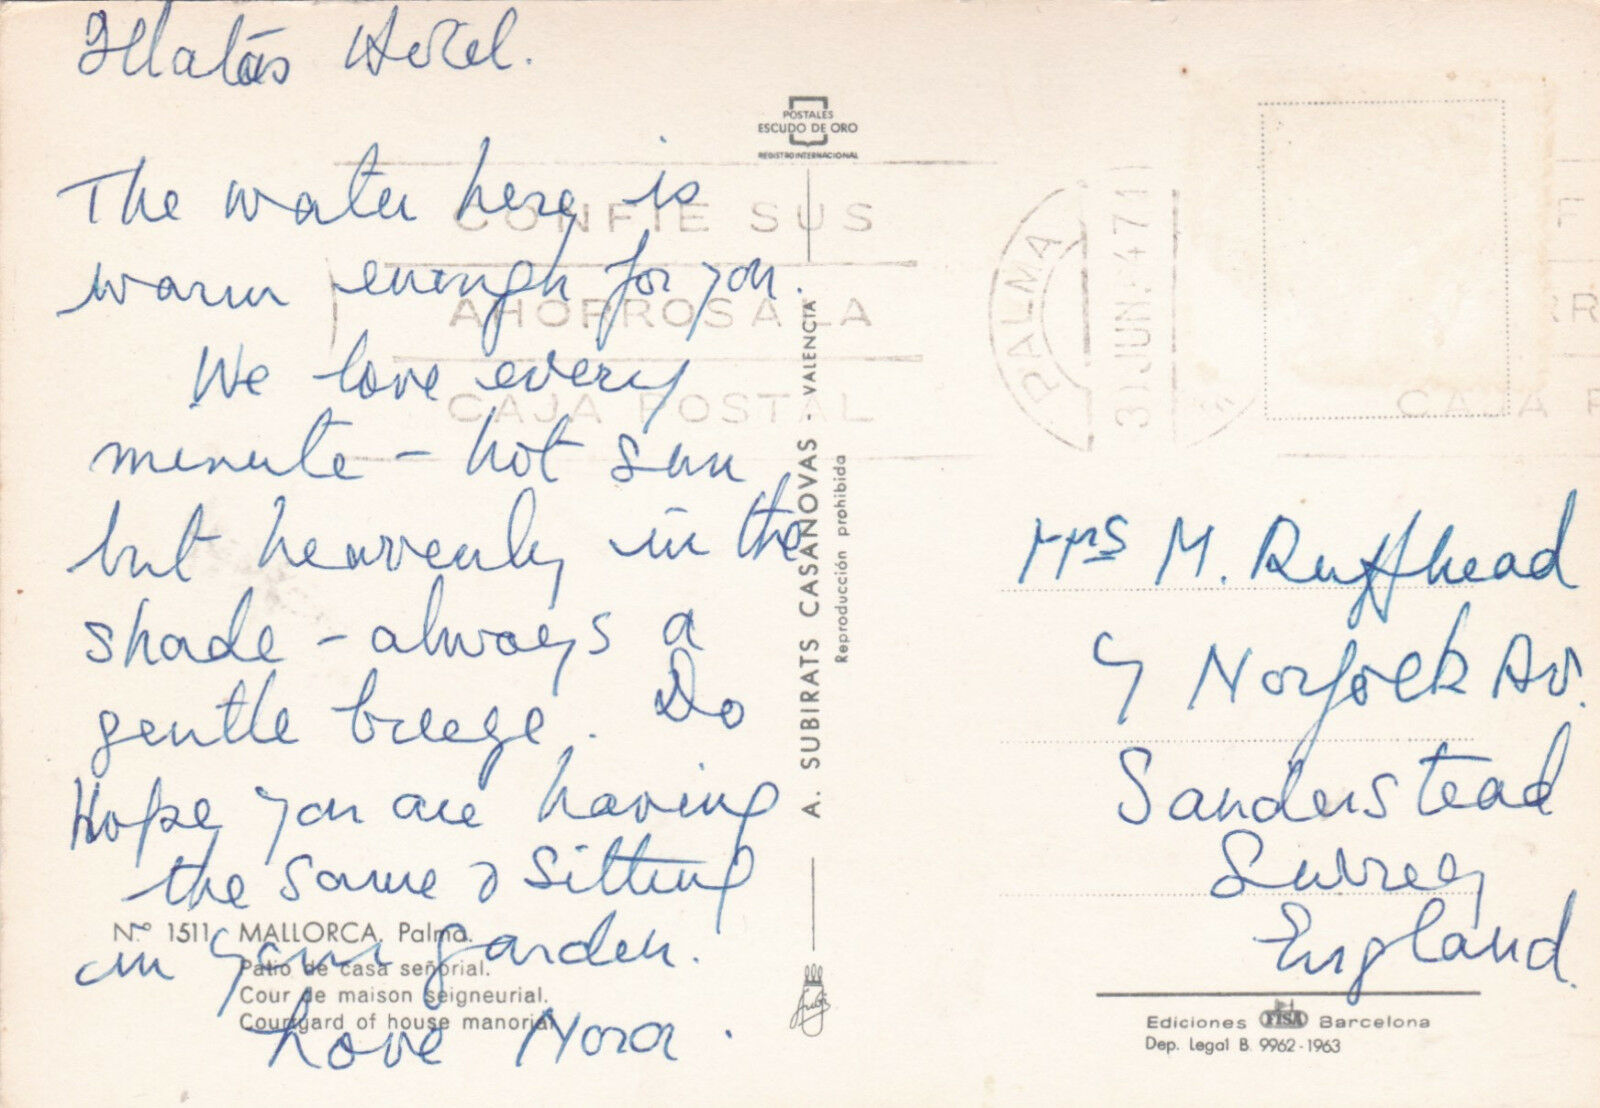 Illatás Hotel.
The water here is
warm enough for you.
We love every
minute - hot sun
but heavenly in the
shade - always a
gentle breeze. Do
Hope you are having
the same & sitting
in your garden.
Love Nora.
Nº 1511 MALLORCA. Palma.
Patio de casa señorial.
Cour de maison seigneurial.
Courtyard of house manorial.
POSTALES
ESCUDO DE ORO
REGISTRO INTERNACIONAL
A. SUBIRATS CASANOVAS - VALENCIA
Reproducción prohibida
CONFIE SUS
AHORROS A LA
CAJA POSTAL
PALMA
JUN
CAJA P
Mrs M. Ruffhead
9 Norfolk Av.
Sanderstead
Surrey
England.
Ediciones FISA Barcelona
Dep. Legal B. 9962-1963